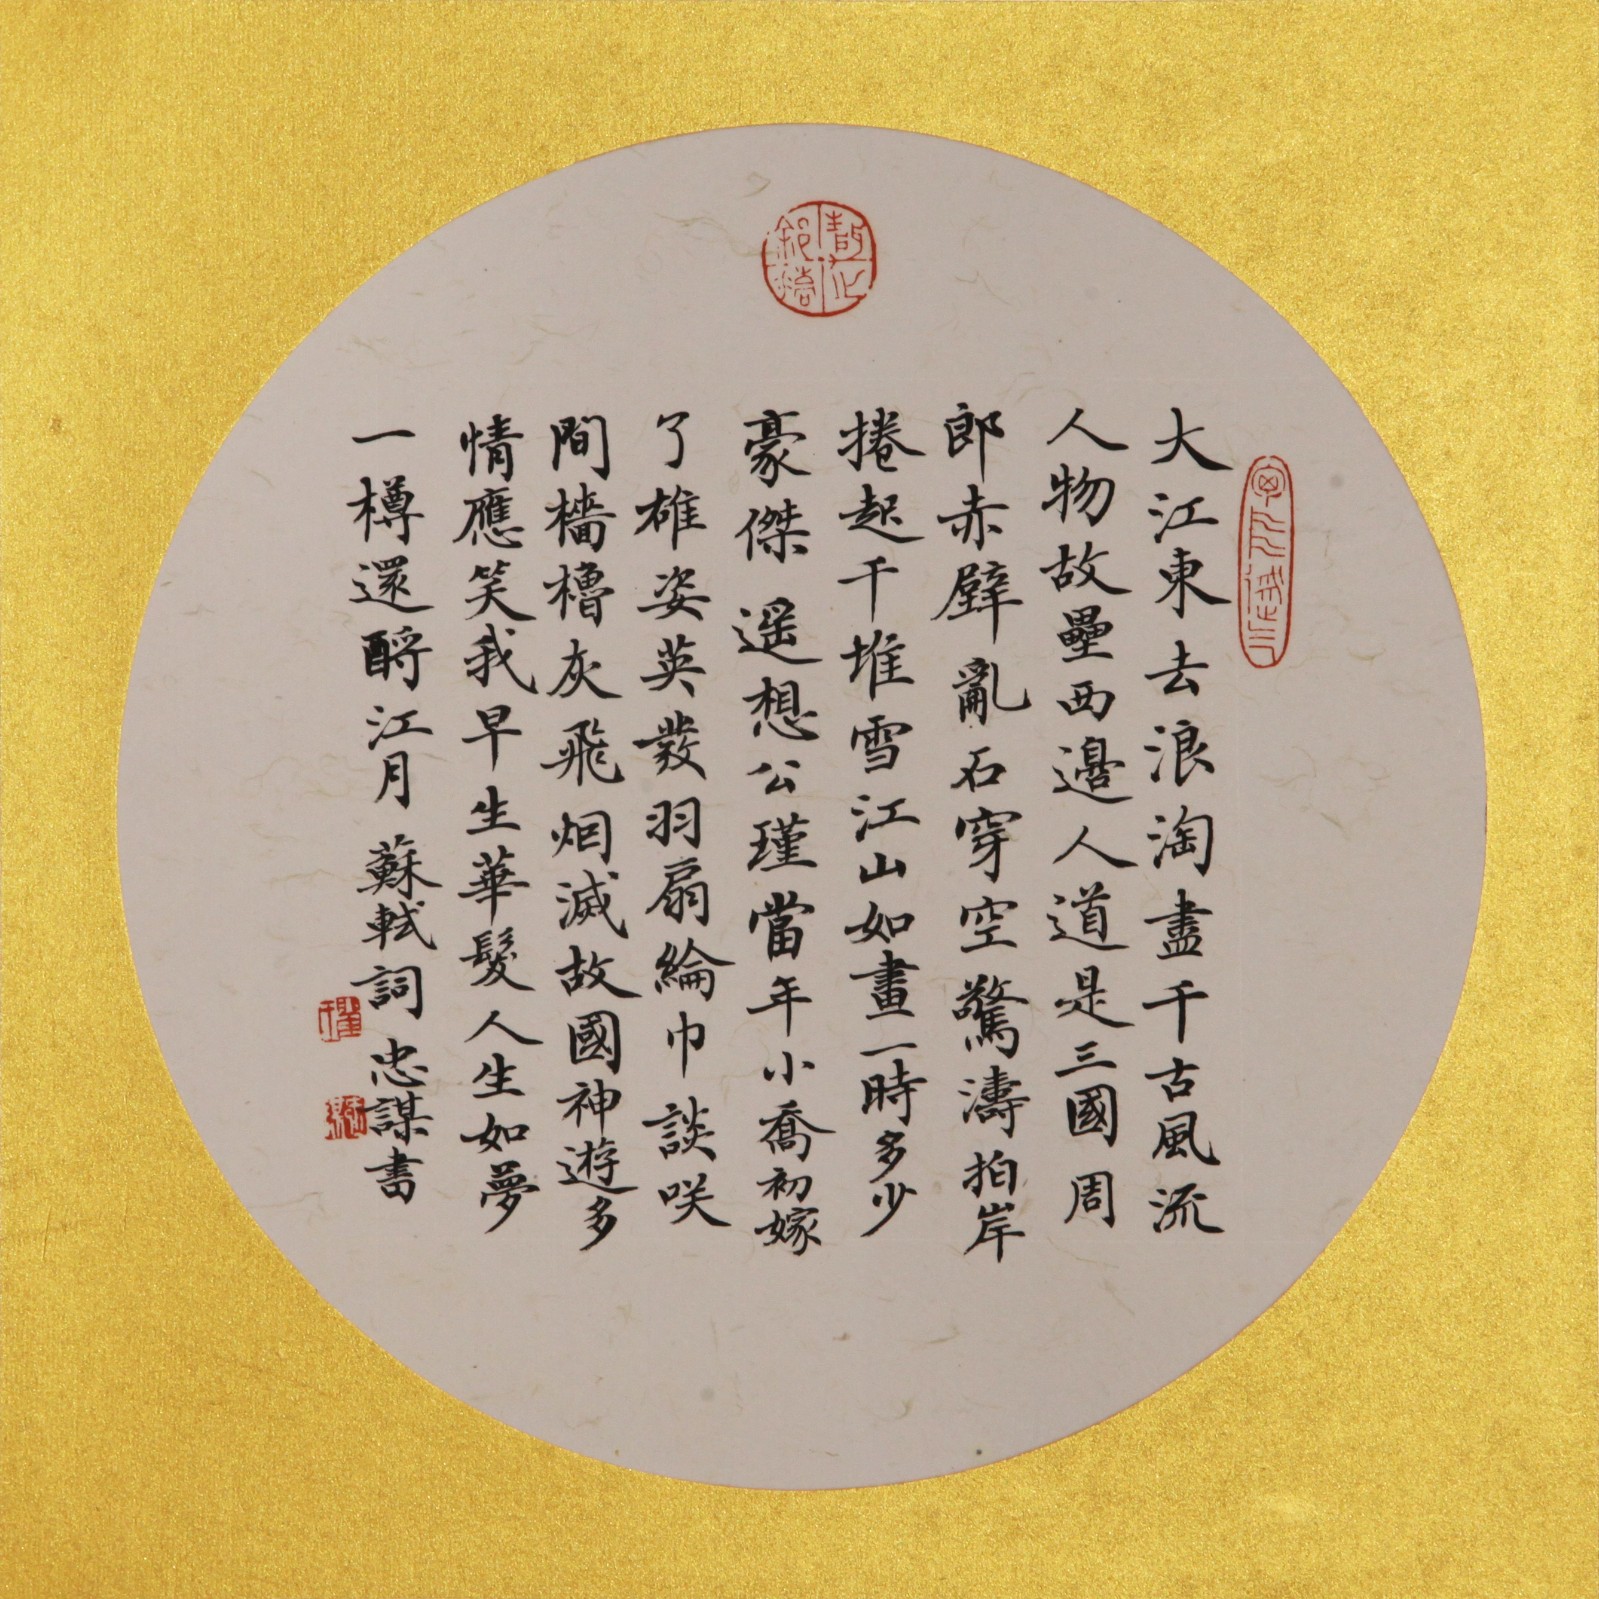 大江東去浪淘盡千古風流
人物故壘西邊人道是三國周
郎赤壁亂石穿空驚濤拍岸
捲起千堆雪江山如畫一時多少
豪傑遥想公瑾當年小喬初嫁
了雄姿英發羽扇綸巾談咲
間檣櫓灰飛烟滅故國神遊多
情應笑我早生華髮人生如夢
一樽還酹江月蘇軾詞忠謀書